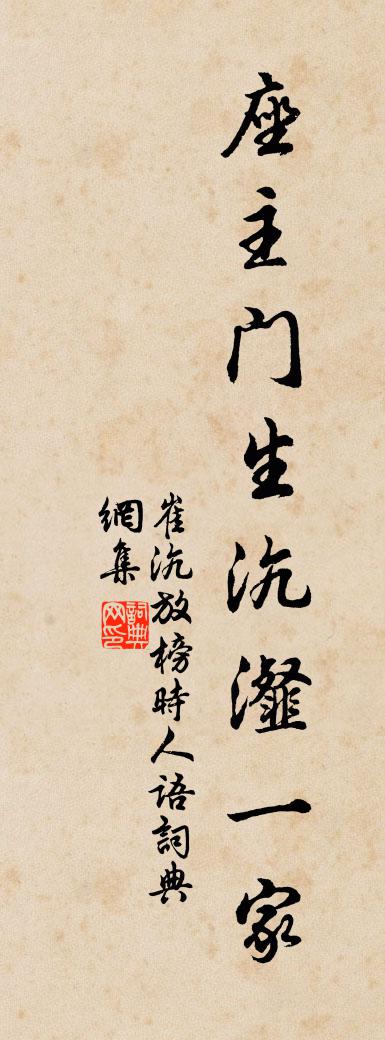 座主門生沆瀣一家
崔沆放榜時人語詞典
網集
詞典
网印